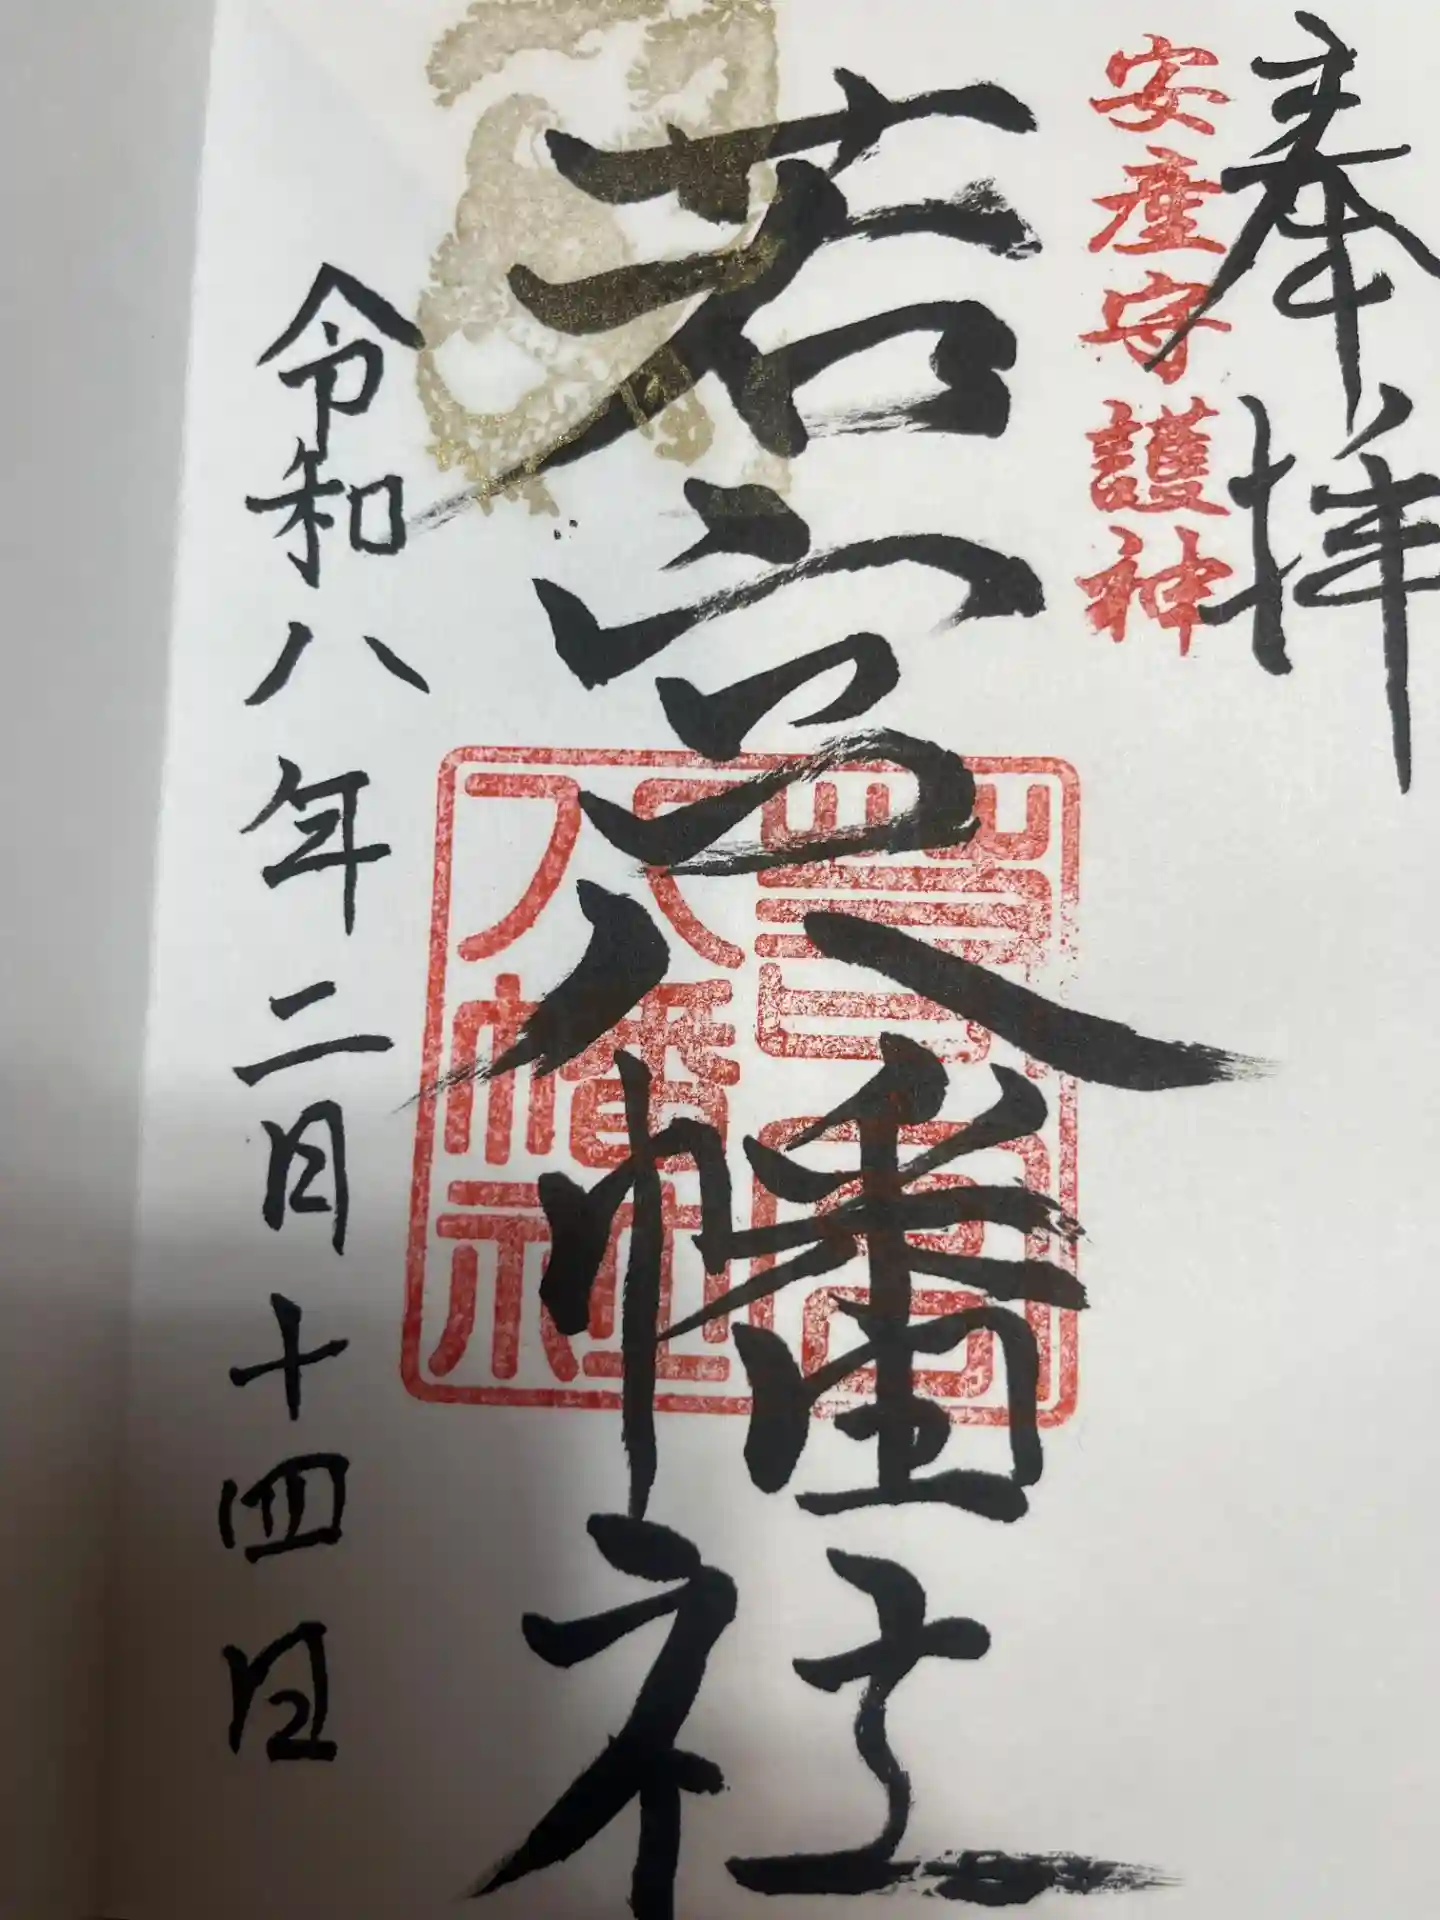 奉拝
安産守護神
若宮八幡社
八幡社
令和八年二月十四日